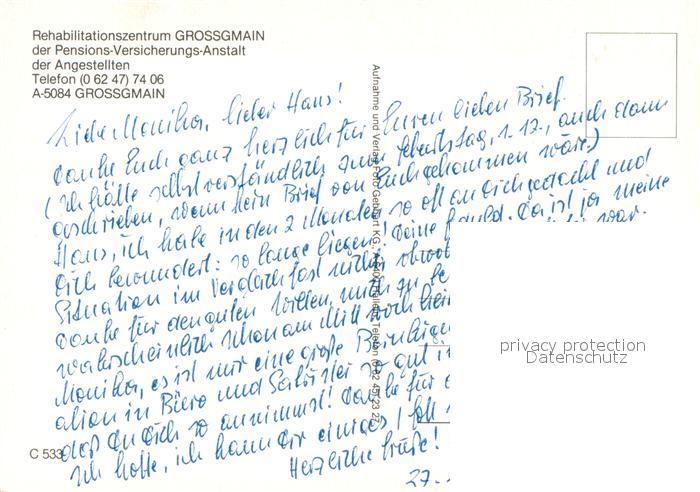 Rehabilitationszentrum GROSSGMAIN
der Pensions-Versicherungs-Anstalt
der Angestellten
Telefon (0 62 47) 74 06
A-5084 GROSSGMAIN
Liebe Monika, lieber Hans!
danke Euch ganz herzlich für Euren lieben Brief.
(Ich hätte selbstverständlich zum Geburtstag, 1.12., auch dann
geschrieben, wenn kein Brief von Euch gekommen wäre.)
Hans, ich habe in den 2 Monaten so oft an Dich gedacht und
Dich bewundert: so lange liegen! Deine Geduld. Da ist ja meine
Situation im Vergleich fast nichts war.
danke für den guten Willen, mich zu
wahrscheinlich schon am Mitt
Monika, es ist mir eine große Beruhigun
ation in Büro und so gut
daß Du Dich so annimmst! Danke für
Ich hoffe, ich kann Dir einiges
Herzliche Grüße!
27.
Aufnahme und Verlag Foto Gebhart KG, Hallein, Telefon (0 62 45) 23 27
C 533
privacy protection
Datenschutz